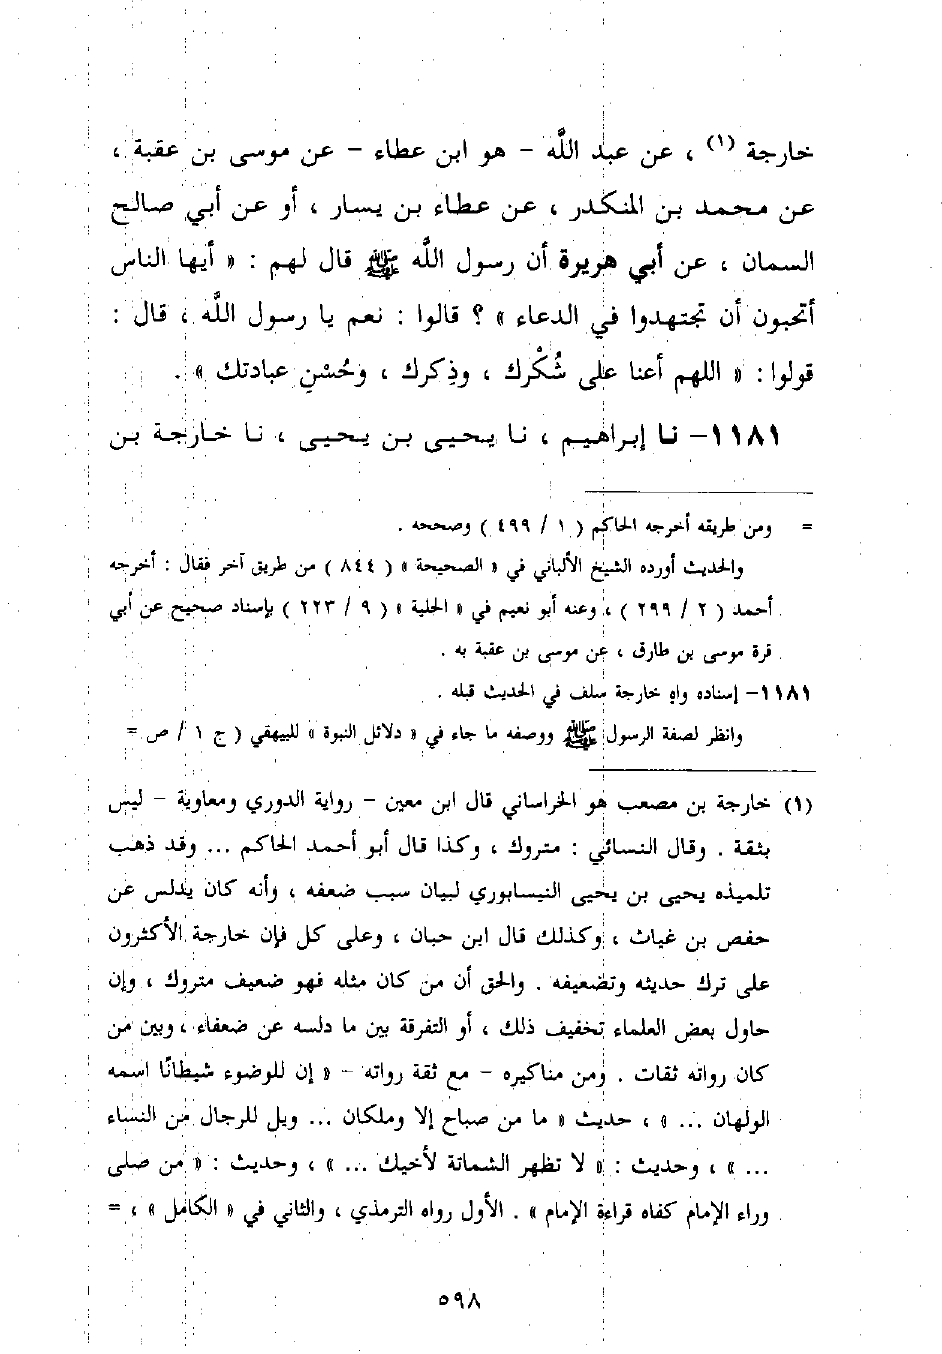 خارجة (١) ، عن عبد اللَّه - هو ابن عطاء - عن موسى بن عقبة ،
عن محمد بن المنكدر ، عن عطاء بن يسار ، أو عن أبي صالح
السمان ، عن أبي هريرة أن رسول اللَّه ﷺ قال لهم : « أيها الناس
أتحبون أن تجتهدوا في الدعاء » ؟ قالوا : نعم يا رسول اللَّه ، قال :
قولوا : « اللهم أعنا على شُكْرك ، وذِكرك ، وحُسْنِ عبادتك » .
١١٨١- نا إبراهيم ، نا يحيى بن يحيى ، نا خارجة بن
= ومن طريقه أخرجه الحاكم ( ١ / ٤٩٩ ) وصححه .
والحديث أورده الشيخ الألباني في « الصحيحة » ( ٨٤٤ ) من طريق آخر فقال : أخرجه
أحمد ( ٢ / ٢٩٩ ) ، وعنه أبو نعيم في « الحلية » ( ٩ / ٢٢٣ ) بإسناد صحيح عن أبي
قرة موسى بن طارق ، عن موسى بن عقبة به .
١١٨١- إسناده واهٍ خارجة سلف في الحديث قبله .
وانظر لصفة الرسول ﷺ ووصفه ما جاء في « دلائل النبوة » للبيهقي ( ج ١ / ص =
(١) خارجة بن مصعب هو الخراساني قال ابن معين - رواية الدوري ومعاوية - ليس
بثقة . وقال النسائي : متروك ، وكذا قال أبو أحمد الحاكم ... وقد ذهب
تلميذه يحيى بن يحيى النيسابوري لبيان سبب ضعفه ، وأنه كان يدلس عن
حفص بن غياث ، وكذلك قال ابن حبان ، وعلى كل فإن خارجة الأكثرون
على ترك حديثه وتضعيفه . والحق أن من كان مثله فهو ضعيف متروك ، وإن
حاول بعض العلماء تخفيف ذلك ، أو التفرقة بين ما دلسه عن ضعفاء ، وبين من
كان رواته ثقات . ومن مناكيره - مع ثقة رواته - « إن للوضوء شيطانًا اسمه
الولهان ... » ، حديث « ما من صباح إلا وملكان ... ويل للرجال من النساء
... » ، وحديث : « لا تظهر الشماتة لأخيك ... » ، وحديث : « من صلى
وراء الإمام كفاه قراءة الإمام » . الأول رواه الترمذي ، والثاني في « الكامل » ، =
٥٩٨